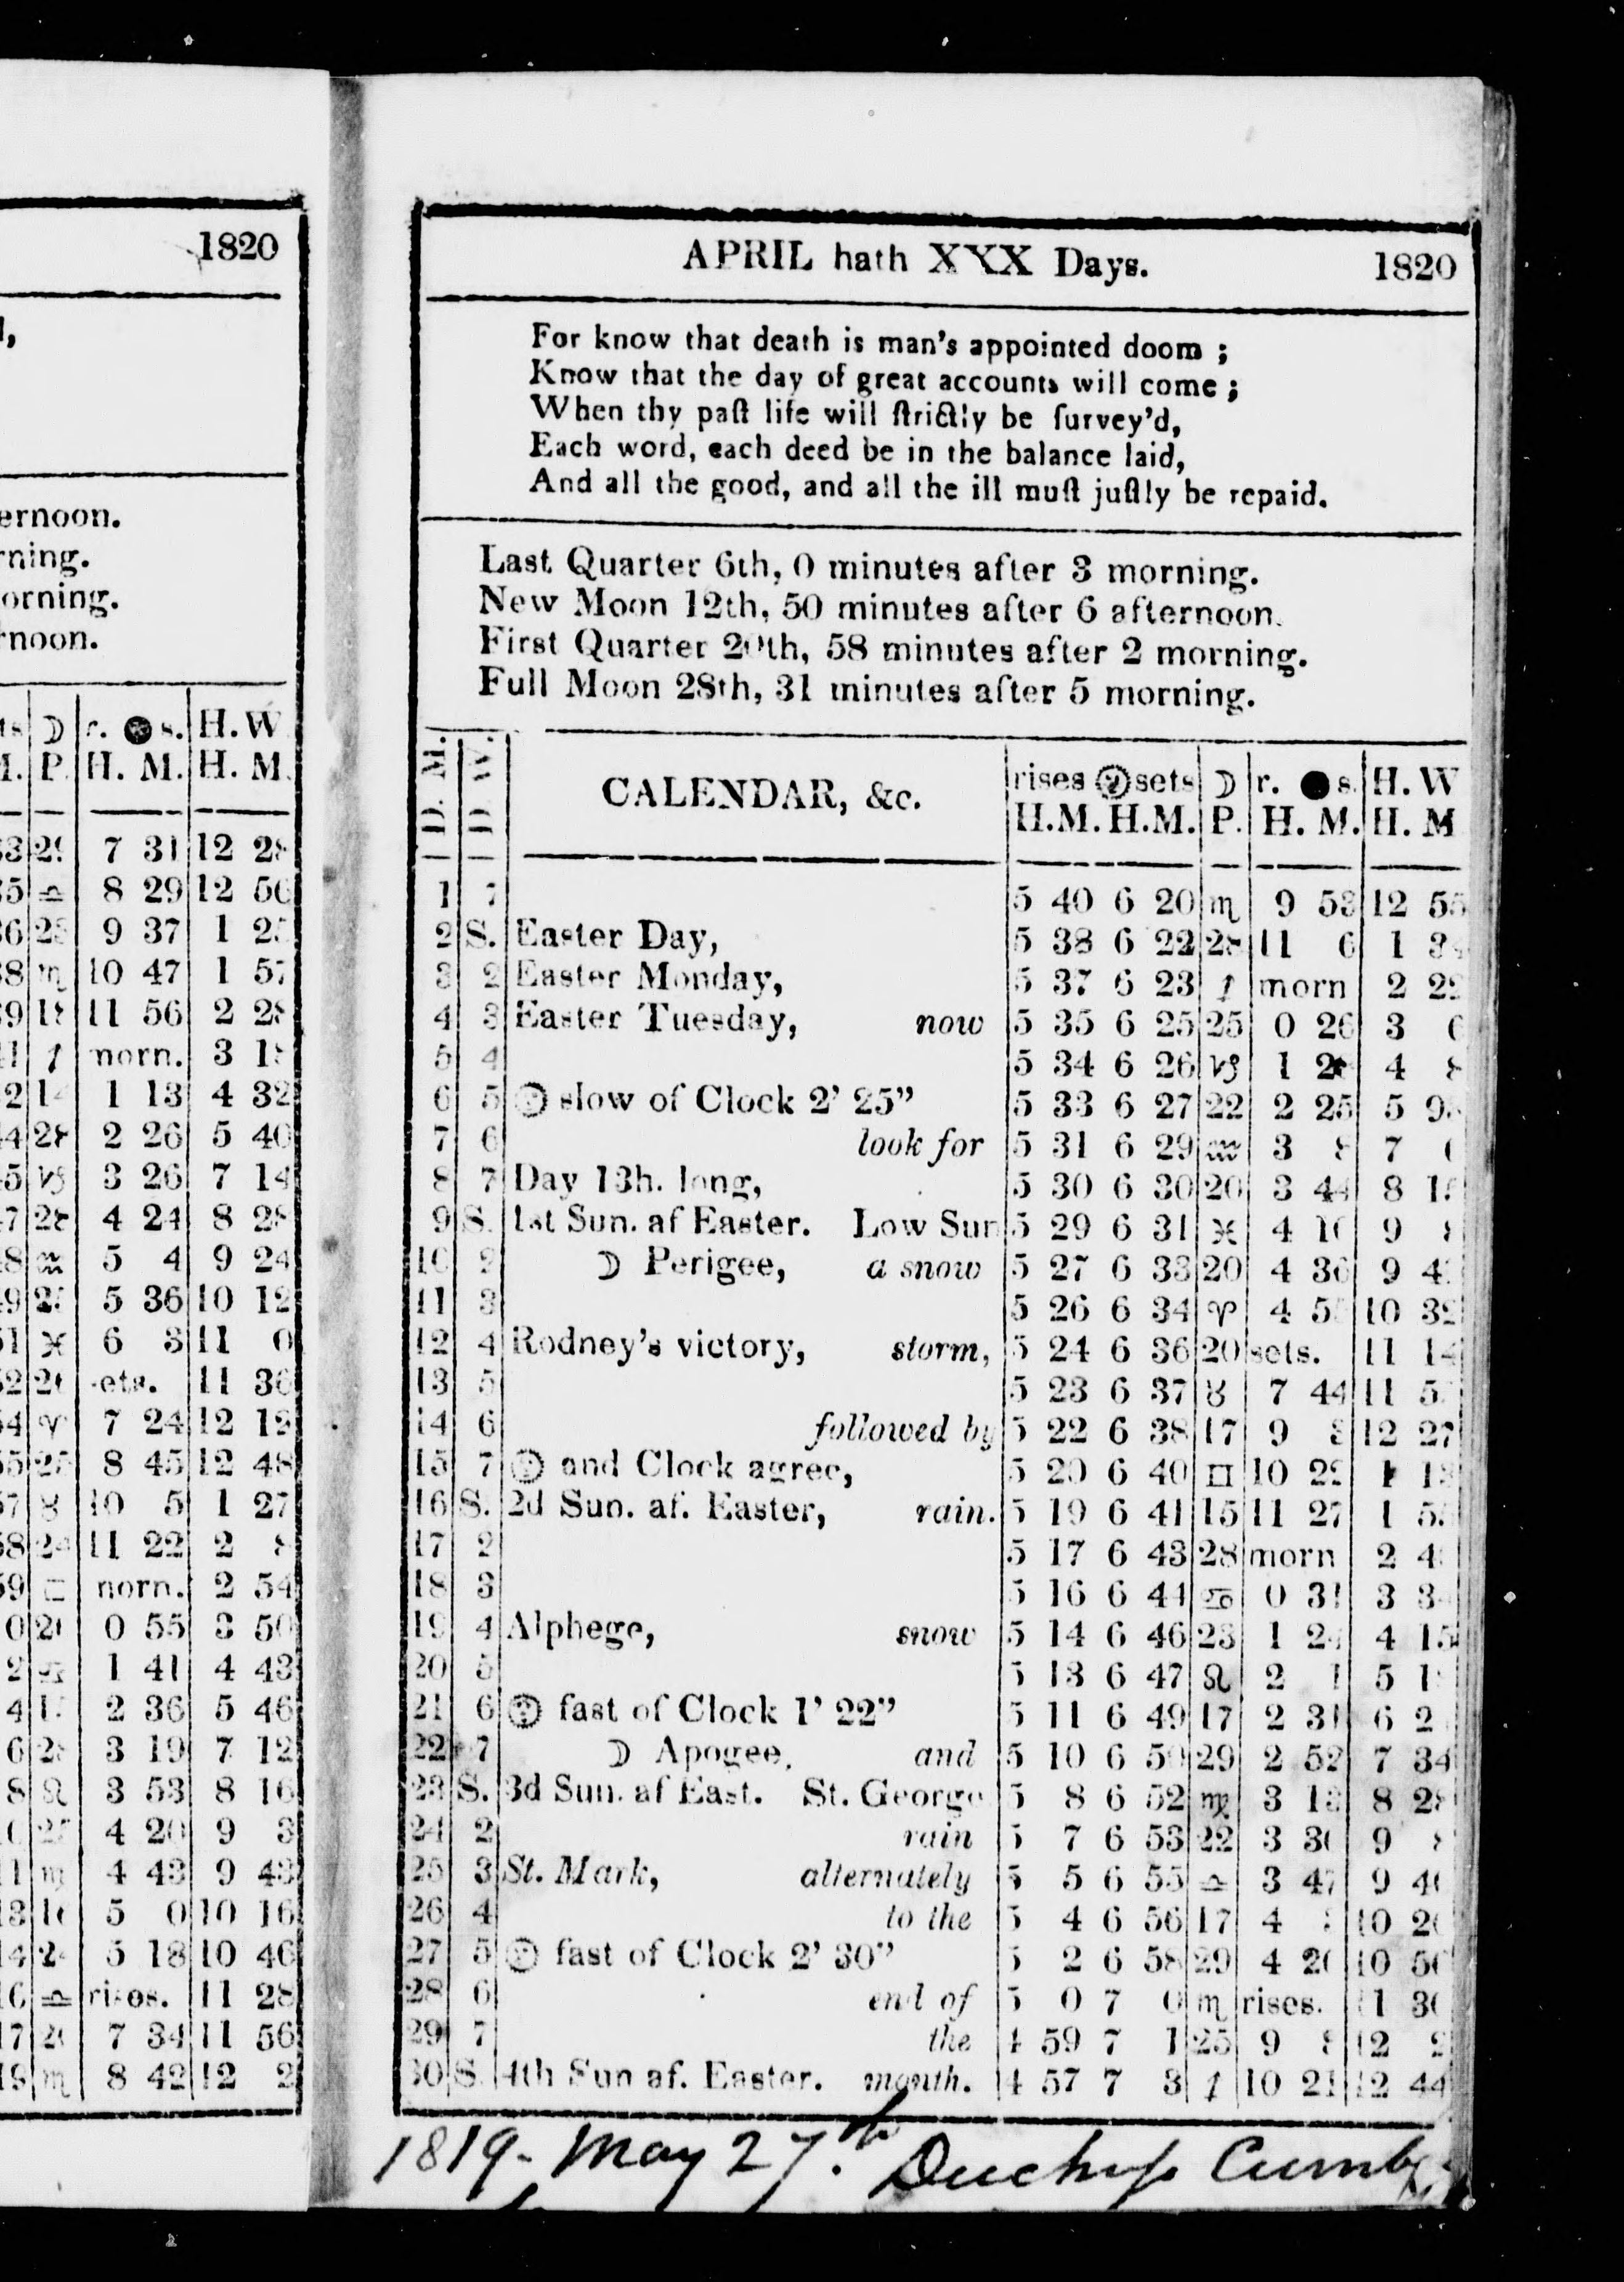 1820
ernoon.
rning.
orning.
rnoon.
☽ r. s. H. W
P. H. M. H. M.
7 31 12
♎ 8 29 12 56
9 37 1
♏ 10 47 1 57
11 56 2
morn. 3
1 13 4 32
2 26 5 40
♑ 3 26 7 14
4 24 8
♒ 5 4 9 24
5 36 10 12
♓ 6 3 11 0
11 36
♈ 7 24 12
8 45 12 48
♉ 10 5 1 27
11 22 2
2 54
0 55 3 50
1 41 4 43
2 36 5 46
3 19 7 12
♌ 3 53 8 16
4 20 9 3
4 43 9 43
5 0 10 16
5 18 10 46
♎ rises. 11 28
7 34 11 56
♏ 8 42 12 2
APRIL hath XXX Days. 1820
For know that death is man's appointed doom ;
Know that the day of great accounts will come ;
When thy paſt life will ſtrictly be ſurvey'd,
Each word, each deed be in the balance laid,
And all the good, and all the ill muſt juſtly be repaid.
Last Quarter 6th, 0 minutes after 3 morning.
New Moon 12th, 50 minutes after 6 afternoon.
First Quarter 20th, 58 minutes after 2 morning.
Full Moon 28th, 31 minutes after 5 morning.
D. M. D. W. CALENDAR, &c. rises ☉ sets ☽ r. ● s. H. W
H.M. H.M. P. H. M. H. M
1 7 5 40 6 20 ♏ 9 53 12 55
2 S. Easter Day, 5 38 6 22 28 11 6 1
3 2 Easter Monday, 5 37 6 23 ♐ morn 2
4 3 Easter Tuesday, now 5 35 6 25 25 0 26 3
5 4 5 34 6 26 ♑ 1 4
6 5 ☉ slow of Clock 2' 25" 5 33 6 27 22 2 25 5
7 6 look for 5 31 6 29 ♒ 3 7
8 7 Day 13h. long, 5 30 6 30 20 3 44 8
9 S. 1st Sun. af Easter. Low Sun 5 29 6 31 ♓ 4 9
10 2 ☽ Perigee, a snow 5 27 6 33 20 4 36 9
11 3 5 26 6 34 ♈ 4 10
12 4 Rodney's victory, storm, 5 24 6 36 20 sets. 11 14
13 5 5 23 6 37 ♉ 7 44 11
14 6 followed by 5 22 6 38 17 9 12 27
15 7 ☉ and Clock agree, 5 20 6 40 ♊ 10 1
16 S. 2d Sun. af. Easter, rain. 5 19 6 41 15 11 27 1
17 2 5 17 6 43 28 morn 2
18 3 5 16 6 44 ♋ 0 31 3
19 4 Alphege, snow 5 14 6 46 23 1 4 15
20 5 5 13 6 47 ♌ 2 5
21 6 ☉ fast of Clock 1' 22" 5 11 6 49 17 2 31 6
22 7 ☽ Apogee, and 5 10 6 50 29 2 52 7 34
23 S. 3d Sun. af East. St. George 5 8 6 52 ♍ 3 8
24 2 rain 5 7 6 53 22 3 9
25 3 St. Mark, alternately 5 5 6 55 ♎ 3 47 9
26 4 to the 5 4 6 56 17 4 10
27 5 ☉ fast of Clock 2' 30" 5 2 6 58 29 4 10
28 6 end of 5 0 7 0 ♏ rises.
29 7 the 4 59 7 1 25 9 12
30 S. 4th Sun af. Easter. month. 4 57 7 3 ♐ 10 21 12 44
1819- May 27.th Duchess Cumb